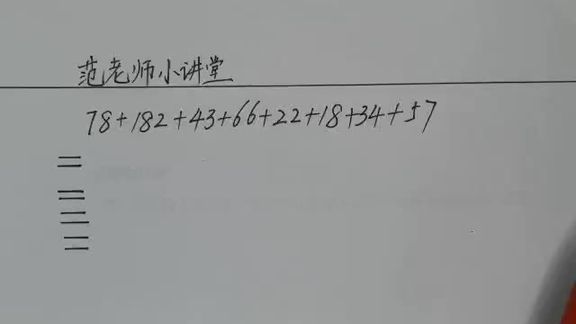 范老师小讲堂
78+182+43+66+22+18+34+57
=
=
=
=